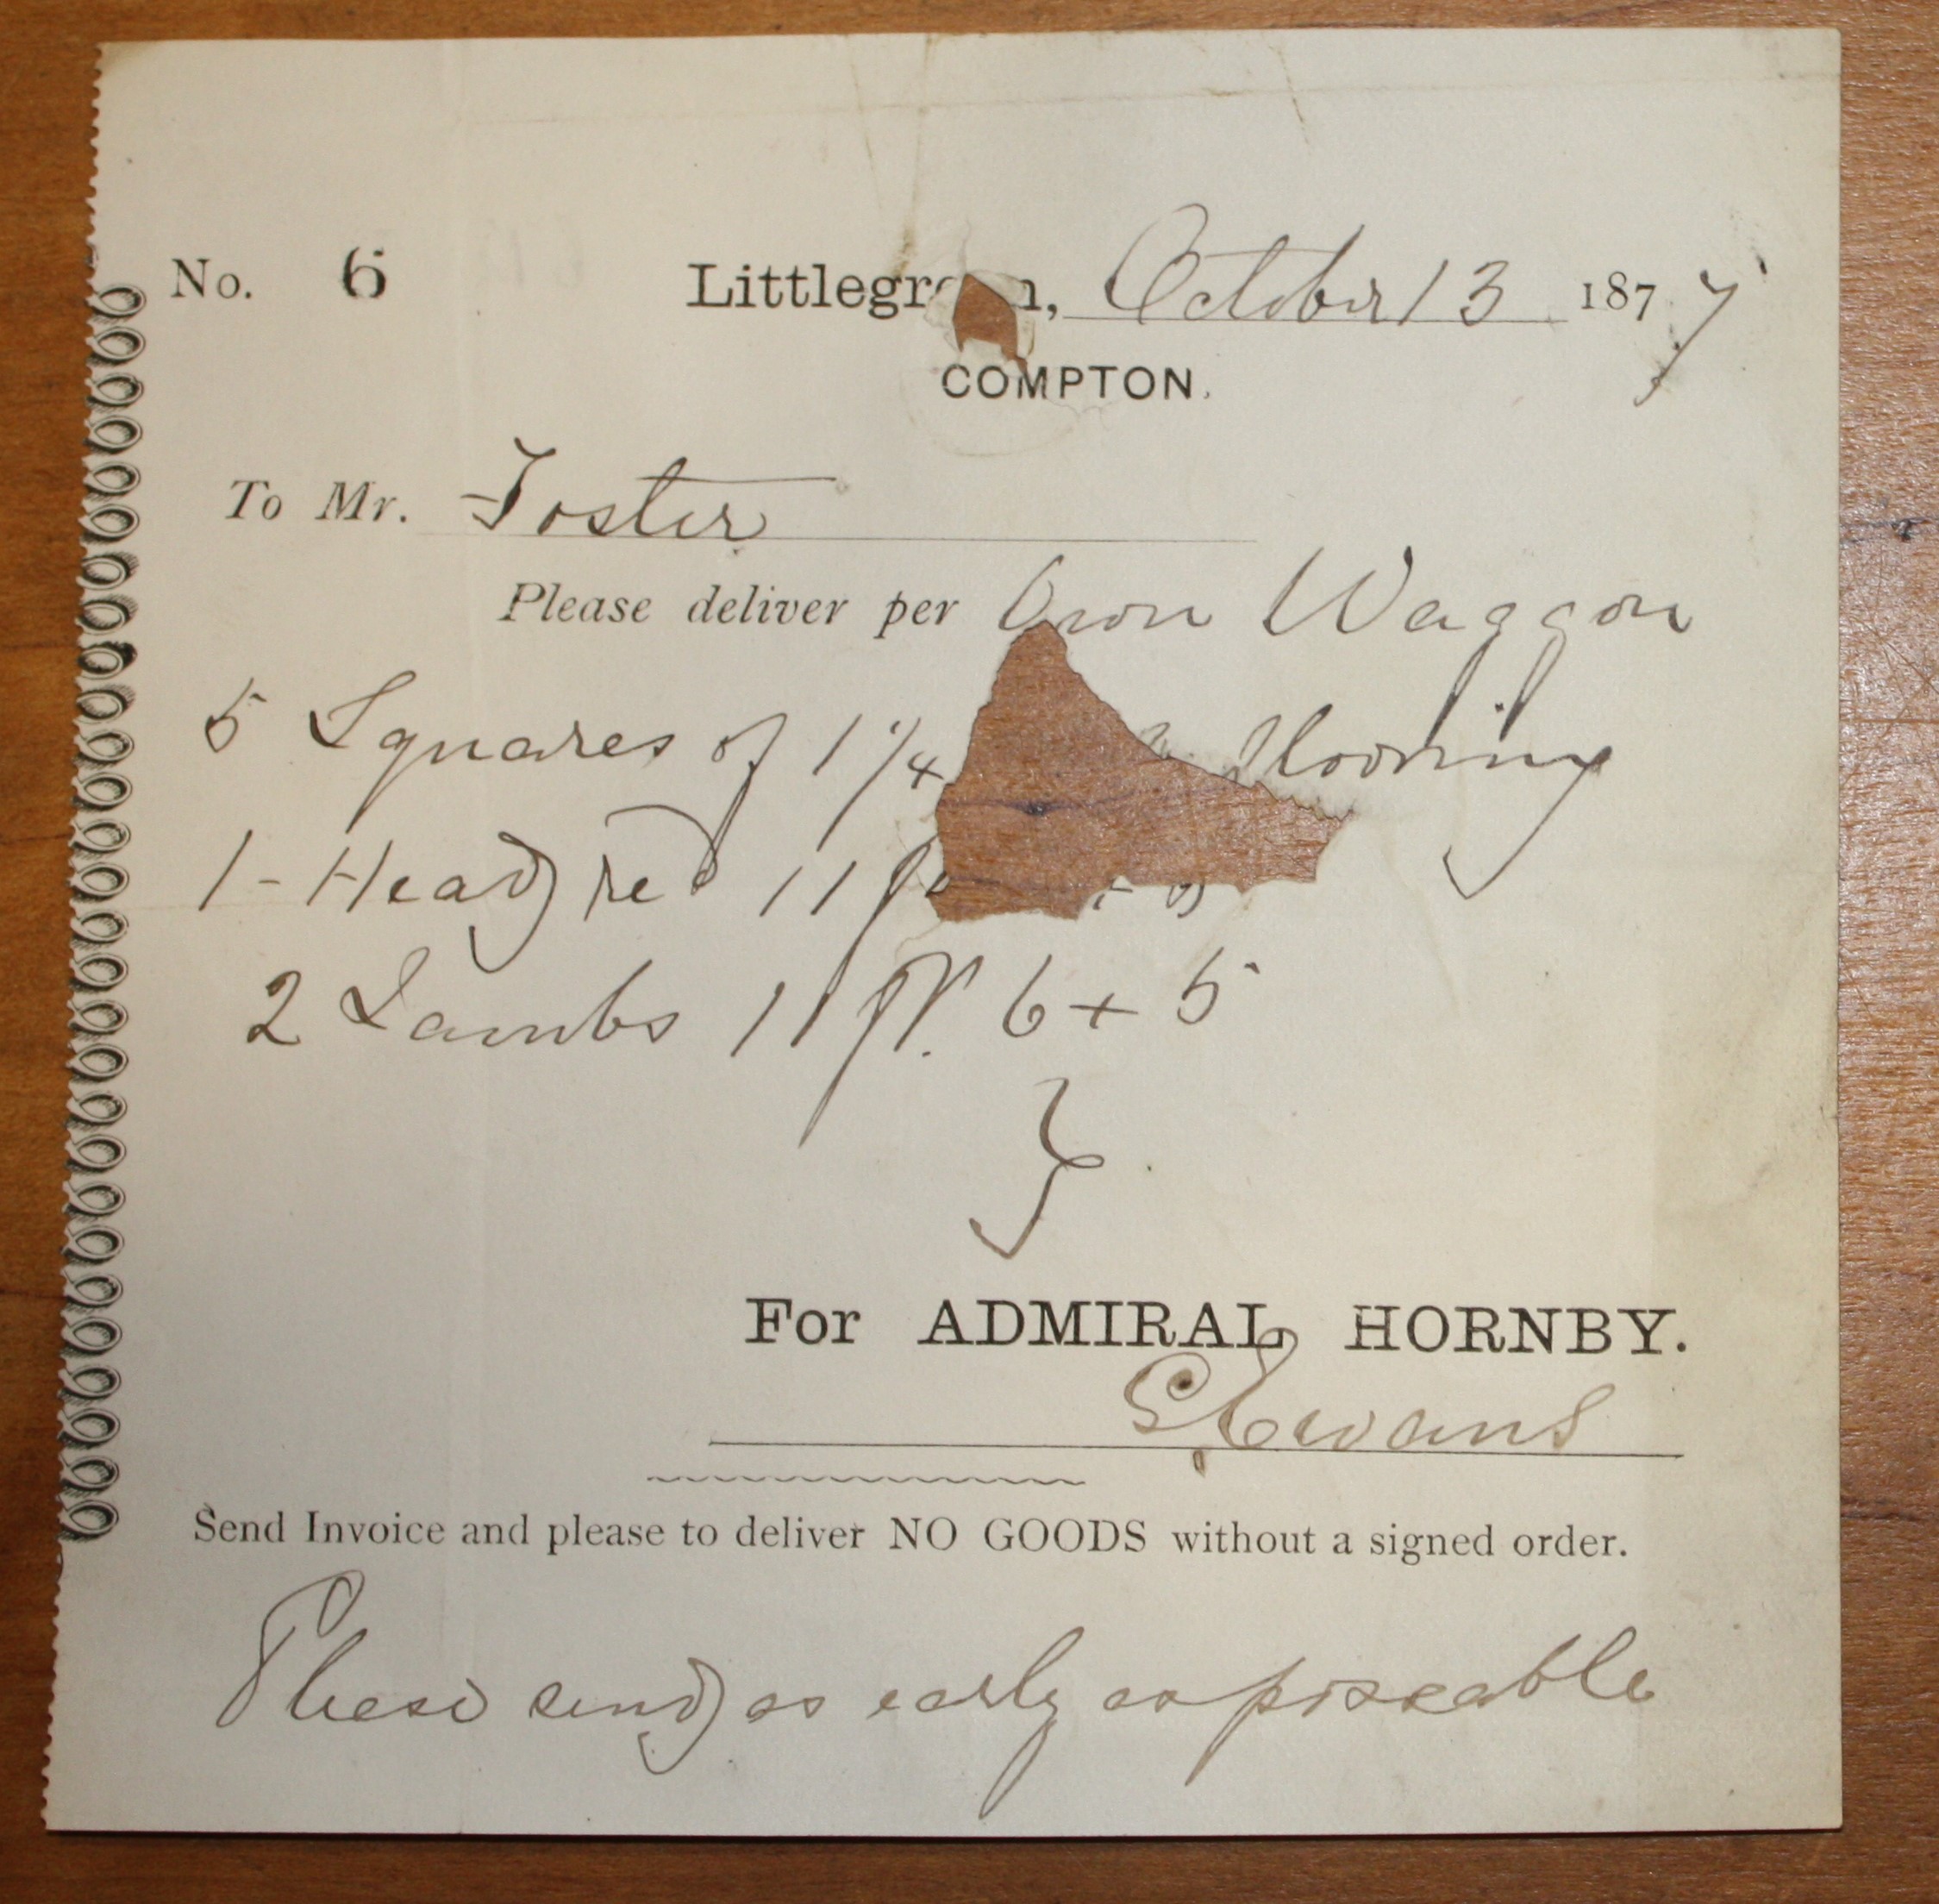 No. 6 Littlegreen, October 13 1877
COMPTON.
To Mr. Foster
Please deliver per Own Waggon
5 Squares of 1 1/4 Flooring
1 - Head 11
2 Jambs 11 ft. 6 + 5
For ADMIRAL HORNBY.
Evans
Send Invoice and please to deliver NO GOODS without a signed order.
Please send as early as posseable